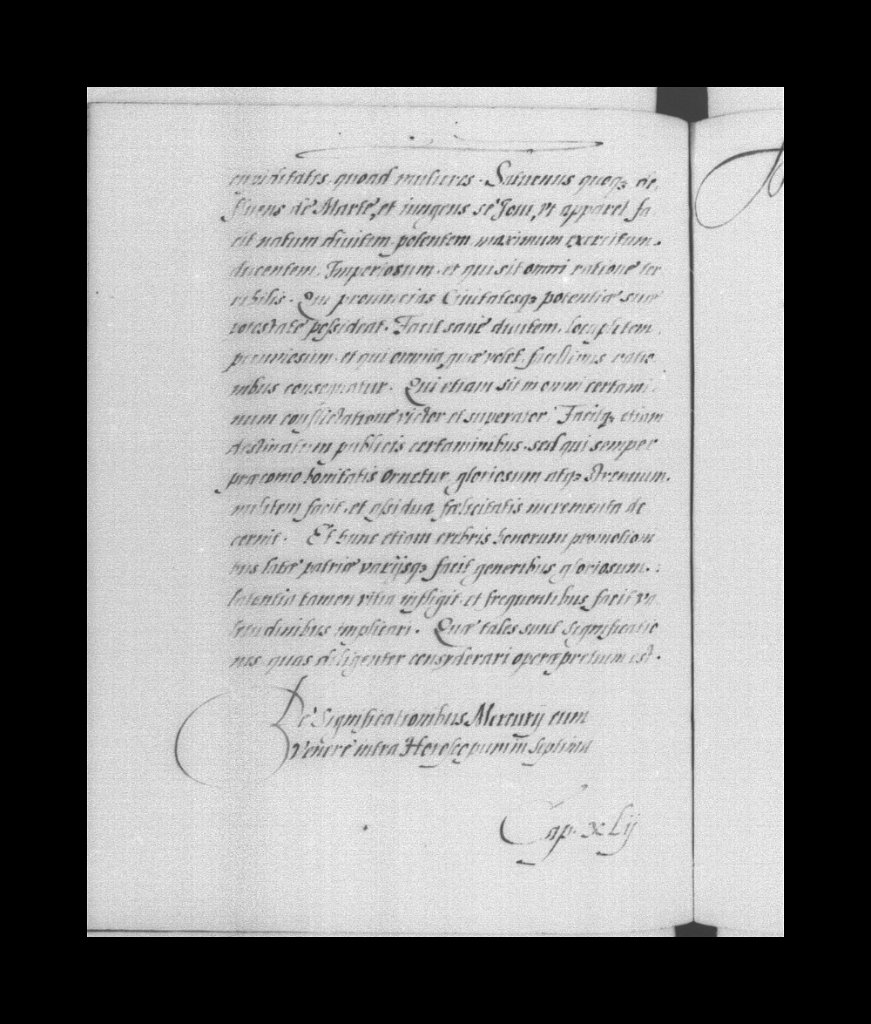 cupiditatis quoad mulieres. Saturnus quoqȝ de
fluens de Marte, et iungens se Joui, vt apparet fa
cit natum diuitem potentem maximum exercitum.
ducentem. Imperiosum. et qui sit omni ratione ter
ribilis. Qui prouincias Ciuitatesqȝ potentiæ suæ
potestate possideat. Facit sane diuitem. locupletem
pecuniosum. et qui omnia, quæ velet, facilimis ratio
nibus consequatur. Qui etiam sit in omni certami
num conflictatione victor et superator. Facitqȝ etiam
destinatum publicis certaminibus. sed qui semper
præconio bonitatis ornetur, gloriosum atqȝ strennum.
militem facit. et assidua fælicitatis incrementa de
cernit. Et hunc etiam crebris honorum promotioni
bus latæ patriæ varijsqȝ facit generibus gloriosum.
latentia tamen vitia infligit. et frequentibus facit va
letudinibus implicari. Quæ tales sunt significatio
nes. quas diligenter consyderari operæpretium est.
De Significationibus Mercurij cum
Venere intra Horoscopum in septima
Cap. xLij